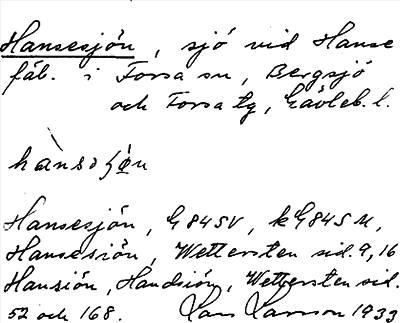 Hansesjön, sjö vid Hanse
fäb. i Forsa sn, Bergsjö
och Forsa tg, Gävleb. l.
Hansesjön, G 84 SV, kG 84 S M,
Hansesiön, Wettersten sid. 9, 16
Hansiön, Handsiön, Wettersten sid.
52 och 168. Lars Larson 1933